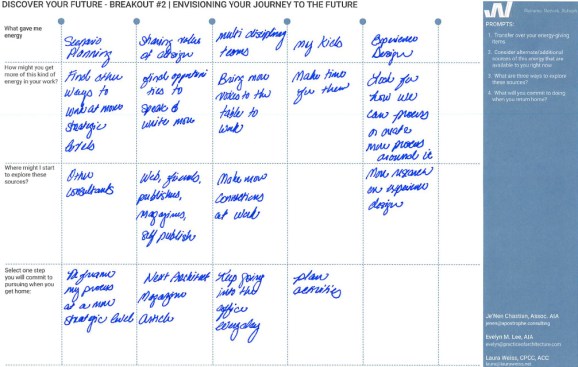 DISCOVER YOUR FUTURE - BREAKOUT #2 | ENVISIONING YOUR JOURNEY TO THE FUTURE
What gave me
energy
Scenario
Planning
Sharing value
of design
multi disciplinary
teams
my kids
Experience
Design
How might you get
more of this kind of
energy in your work?
Find other
ways to
work at more
strategic
levels
find opportuni
ties to
speak &
write more
Bring more
voices to the
table to
work
Make time
for them
Look for
how we
can process
or create
more process
around it
Where might I start
to explore these
sources?
Other
consultants
Web, friends,
publishers,
magazines,
self publish
Make more
connections
at work
More research
on experience
design
Select one step
you will commit to
pursuing when you
get home:
my process
at a more
strategic level
Next Architect
Magazine
article
Keep going
into the
office
everyday
plan
activities
PROMPTS:
1. Transfer over your energy-giving
items.
2. Consider alternate/additional
sources of this energy that are
available to you right now
3. What are three ways to explore
these sources?
4. What will you commit to doing
when you return home?
Je'Nen Chastain, Assoc. AIA
jenen@apostrophe.consulting
Evelyn M. Lee, AIA
evelyn@practiceofarchitecture.com
Laura Weiss, CPCC, ACC